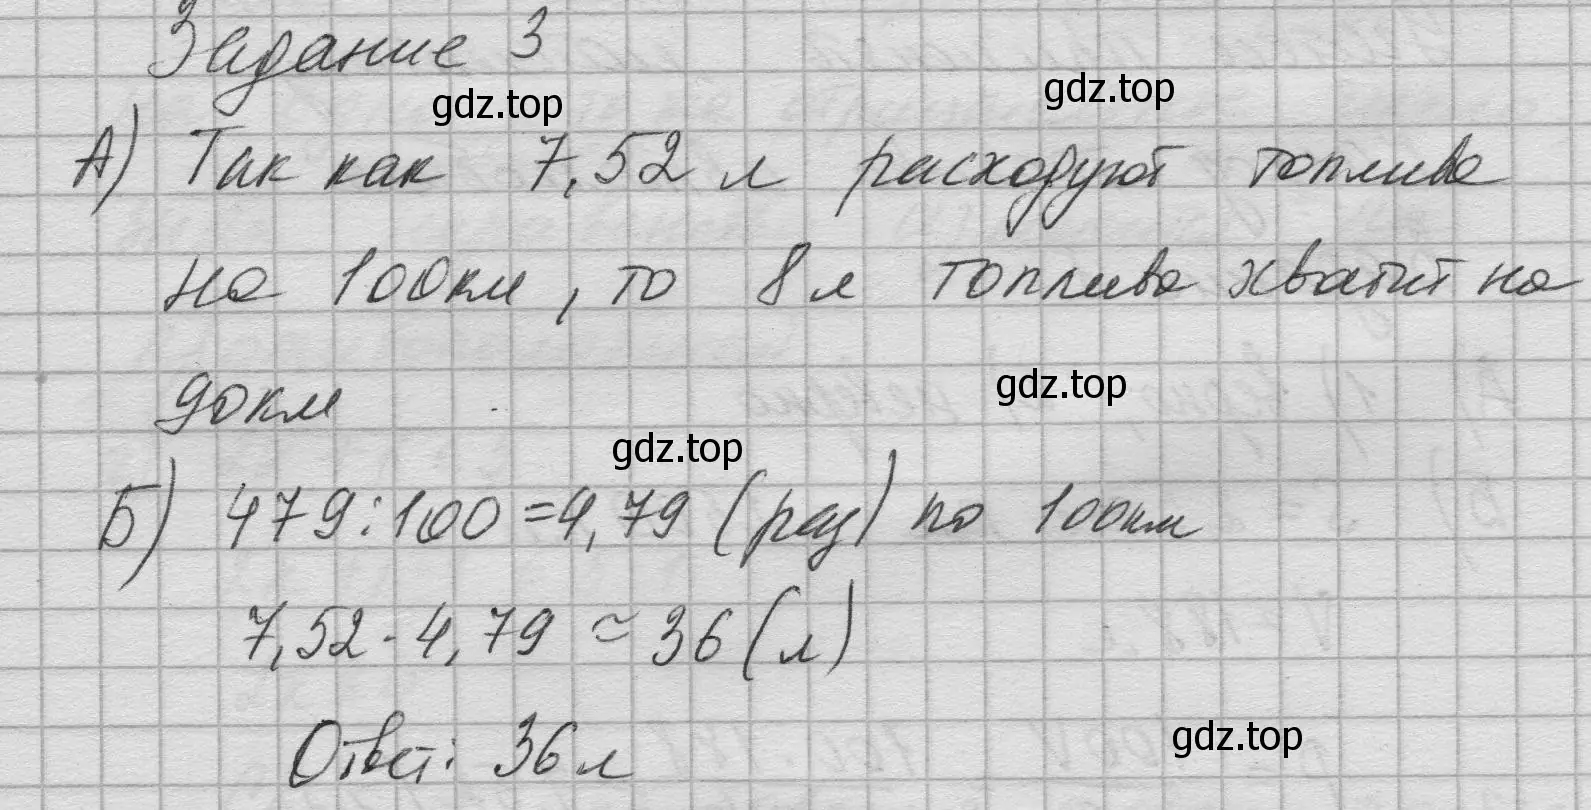 Задание 3
gdz.top
gdz.top
А) Так как 7,52 л расходуют топлива
на 100км, то 8 л топлива хватит на
90км
gdz.top
gdz.top
Б) 479:100=4,79 (раз) по 100км
7,52·4,79≈36(л)
gdz.top
Ответ: 36л